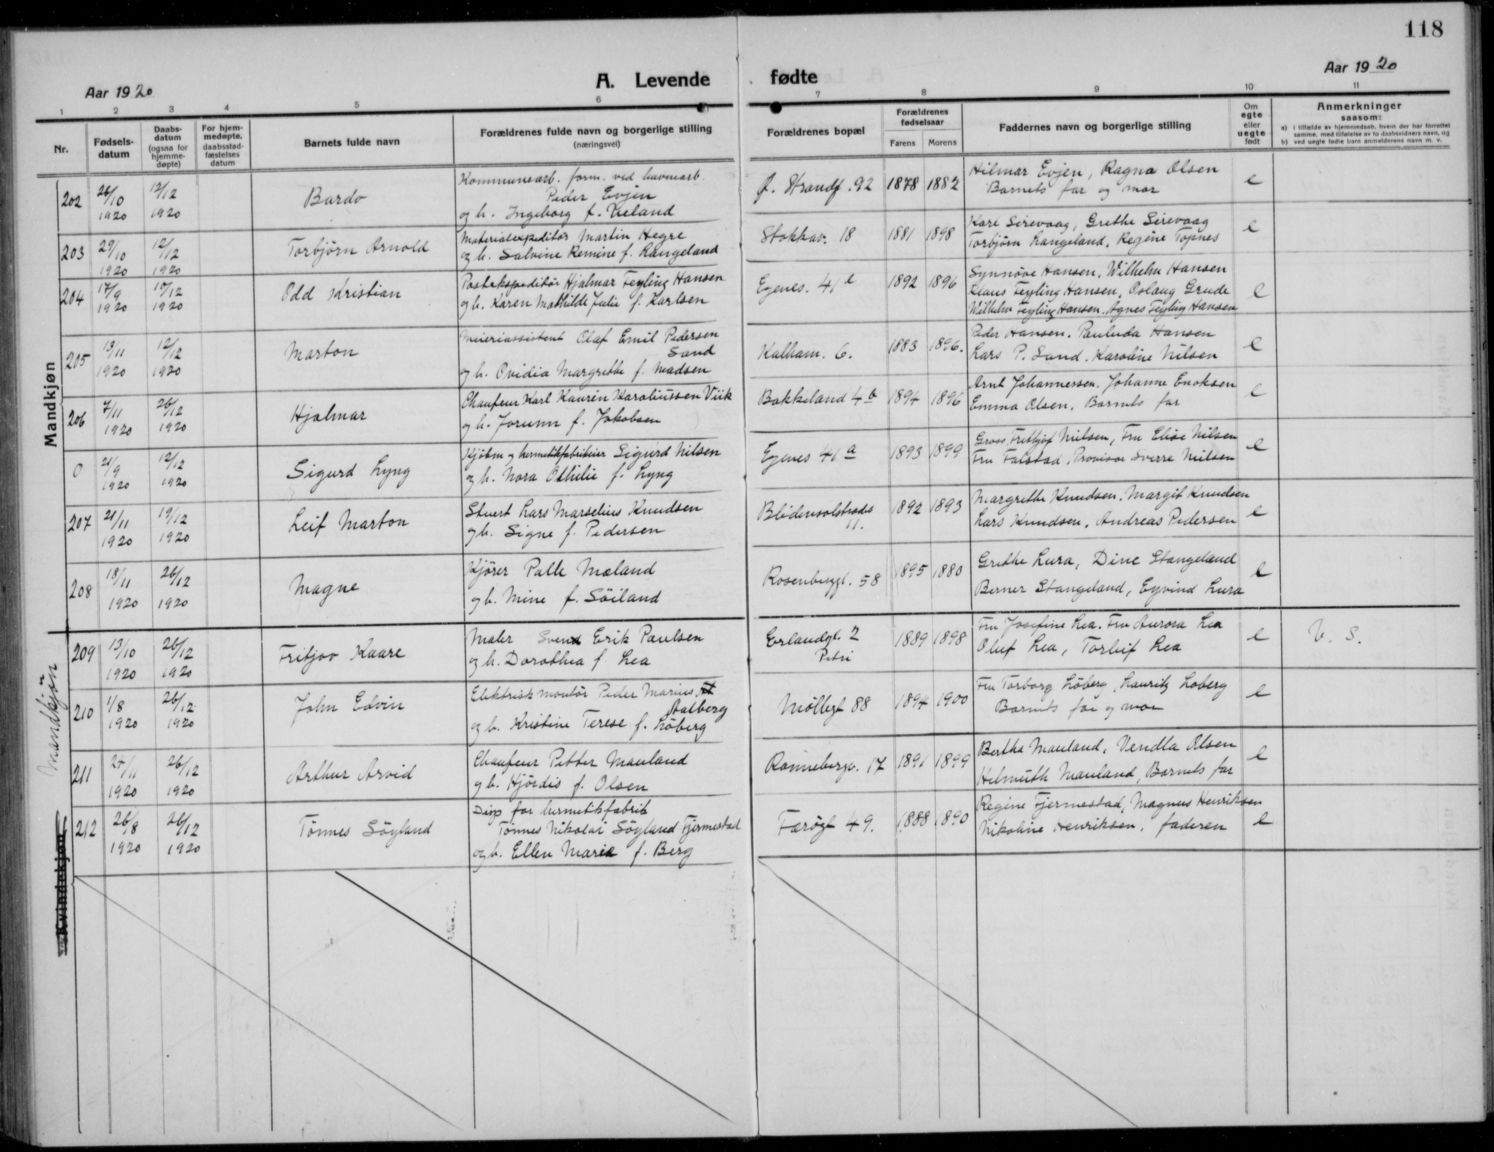 118
Aar 1920
A. Levende fødte
Aar 1920
1 2 3 4 5 6 7 8 9 10 11
Nr. Fødsels-datum Daabs-datum (ogsaa for hjemme-døpte) For hjem-medøpte, daabsstad-fæstelses datum Barnets fulde navn Forældrenes fulde navn og borgerlige stilling (næringsvei) Forældrenes bopæl Forældrenes fødselsaar Farens Morens Faddernes navn og borgerlige stilling Om egte eller uegte født Anmerkninger saasom:
a) i tilfælde av hjemmedaab, hvem der har forrettet samme, med tilføielse av to daabsvidners navn, og
b) ved uegte fødte barn anmelderens navn m. v.
Mandkjøn
202 26/10 1920 12/12 1920 Bardo Kommunearb. form. ved havnearb.
Peder Evjen
og h. Ingeborg f. Vreland Ø. Strandg. 92 1878 1882 Hilmar Evjen, Ragna Olsen
Barnets far og mor e
203 29/10 1920 12/12 1920 Torbjørn Arnold Materialexpeditør Martin Hegre
og h. Salvine Remine f. Langeland Stokkav. 18 1881 1898 Kare Sirevaag, Grethe Sirevaag
Torbjørn Langeland, Regine Topnes e
204 17/9 1920 10/12 1920 Odd Kristian Postekspeditør Hjalmar Feyling Hansen
og h. Karen Mathilde Julie f. Karlsen Egenes. 41 1892 1896 Synnøve Hansen, Wilhelm Hansen
Claus Feyling Hansen, Aslaug Grude
Wilhelm Feyling Hansen, Agnes Feyling Hansen e
205 13/11 1920 12/12 1920 Marton Meieriassistent Olaf Emil Pedersen
Sand
og h. Ovidia Margrethe f. Madsen Kalham. 6. 1883 1896. Peder Hansen, Paulida Hansen
Lars P. Sand. Karoline Nilsen e
206 7/11 1920 26/12 1920 Hjalmar Chaufeur Karl Kaurin Karoliussen Viik
og h. Jorunn f. Jakobsen Bakkeland 4 b 1894 1896 Arnt Johannessen, Johanne Enoksen
Emma Olsen, Barnets far e
0 21/9 1920 12/12 1920 Sigurd Lyng Kjøbm og hermetikfabrikeier Sigurd Nilsen
og h. Nora Othilie f. Lyng Egenes 41 a 1893 1899 Gross Fritjof Nilsen, Fru Elise Nilsen
Fru Falstad, Provisor Sverre Nilsen e
207 21/11 1920 19/12 1920 Leif Marton Stuert Lars Marselius Knudsen
og h. Signe f. Pedersen Blidensolstrads
11. 1892 1893 Margrethe Knudsen, Margit Knudsen
Lars Knudsen, Andreas Pedersen e
208 18/11 1920 26/12 1920 Magne Kjører Palle Mæland
og h. Mine f. Söiland Rosenbergg. 58 1895 1880 Grethe Lura, Dine Stangeland
Berner Stangeland, Eyvind Lura e
Mandkjøn
209 13/10 1920 26/12 1920 Fritjov Kaare Maler Svend Erik Paulsen
og h. Dorothea f. Lea Erlandgt. 2
Petri 1889 1898 Fru Josefine Lea. Fru Aurora Lea
Oluf Lea, Torleif Lea e V. S.
210 1/8 1920 26/12 1920 John Edvin Elektriskmontør Peder Marius
Aalberg
og h. Kristine Terese f. Löberg Møllegt 88 1894 1900 Fru Torborg Löberg, Lauritz Loberg
Barnets far og mor e
211 24/11 1920 26/12 1920 Arthur Arvid Chaufeur Petter Mauland
og h. Hjördis f. Olsen Rønnebergv. 17 1891 1899 Bertha Mauland, Vendla Olsen
Helmuth Mauland, Barnets far e
212 26/8 1920 26/12 1920 Tönnes Söyland Disp for hermetikfabrik
Tønnes Nikolai Söyland Fjermestad
og h. Ellen Marie f. Berg Færøgt 49. 1888 1890 Regine Fjermestad, Magnus Henriksen
Nikoline Henriksen, faderen e
Kvindekjøn